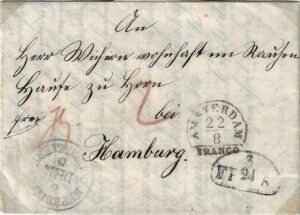 An
Herr Wichern wohnhaft im Rauhen
Hause zu Horn
frei
bei
Hamburg.
AMSTERDAM
22
8
FRANCO